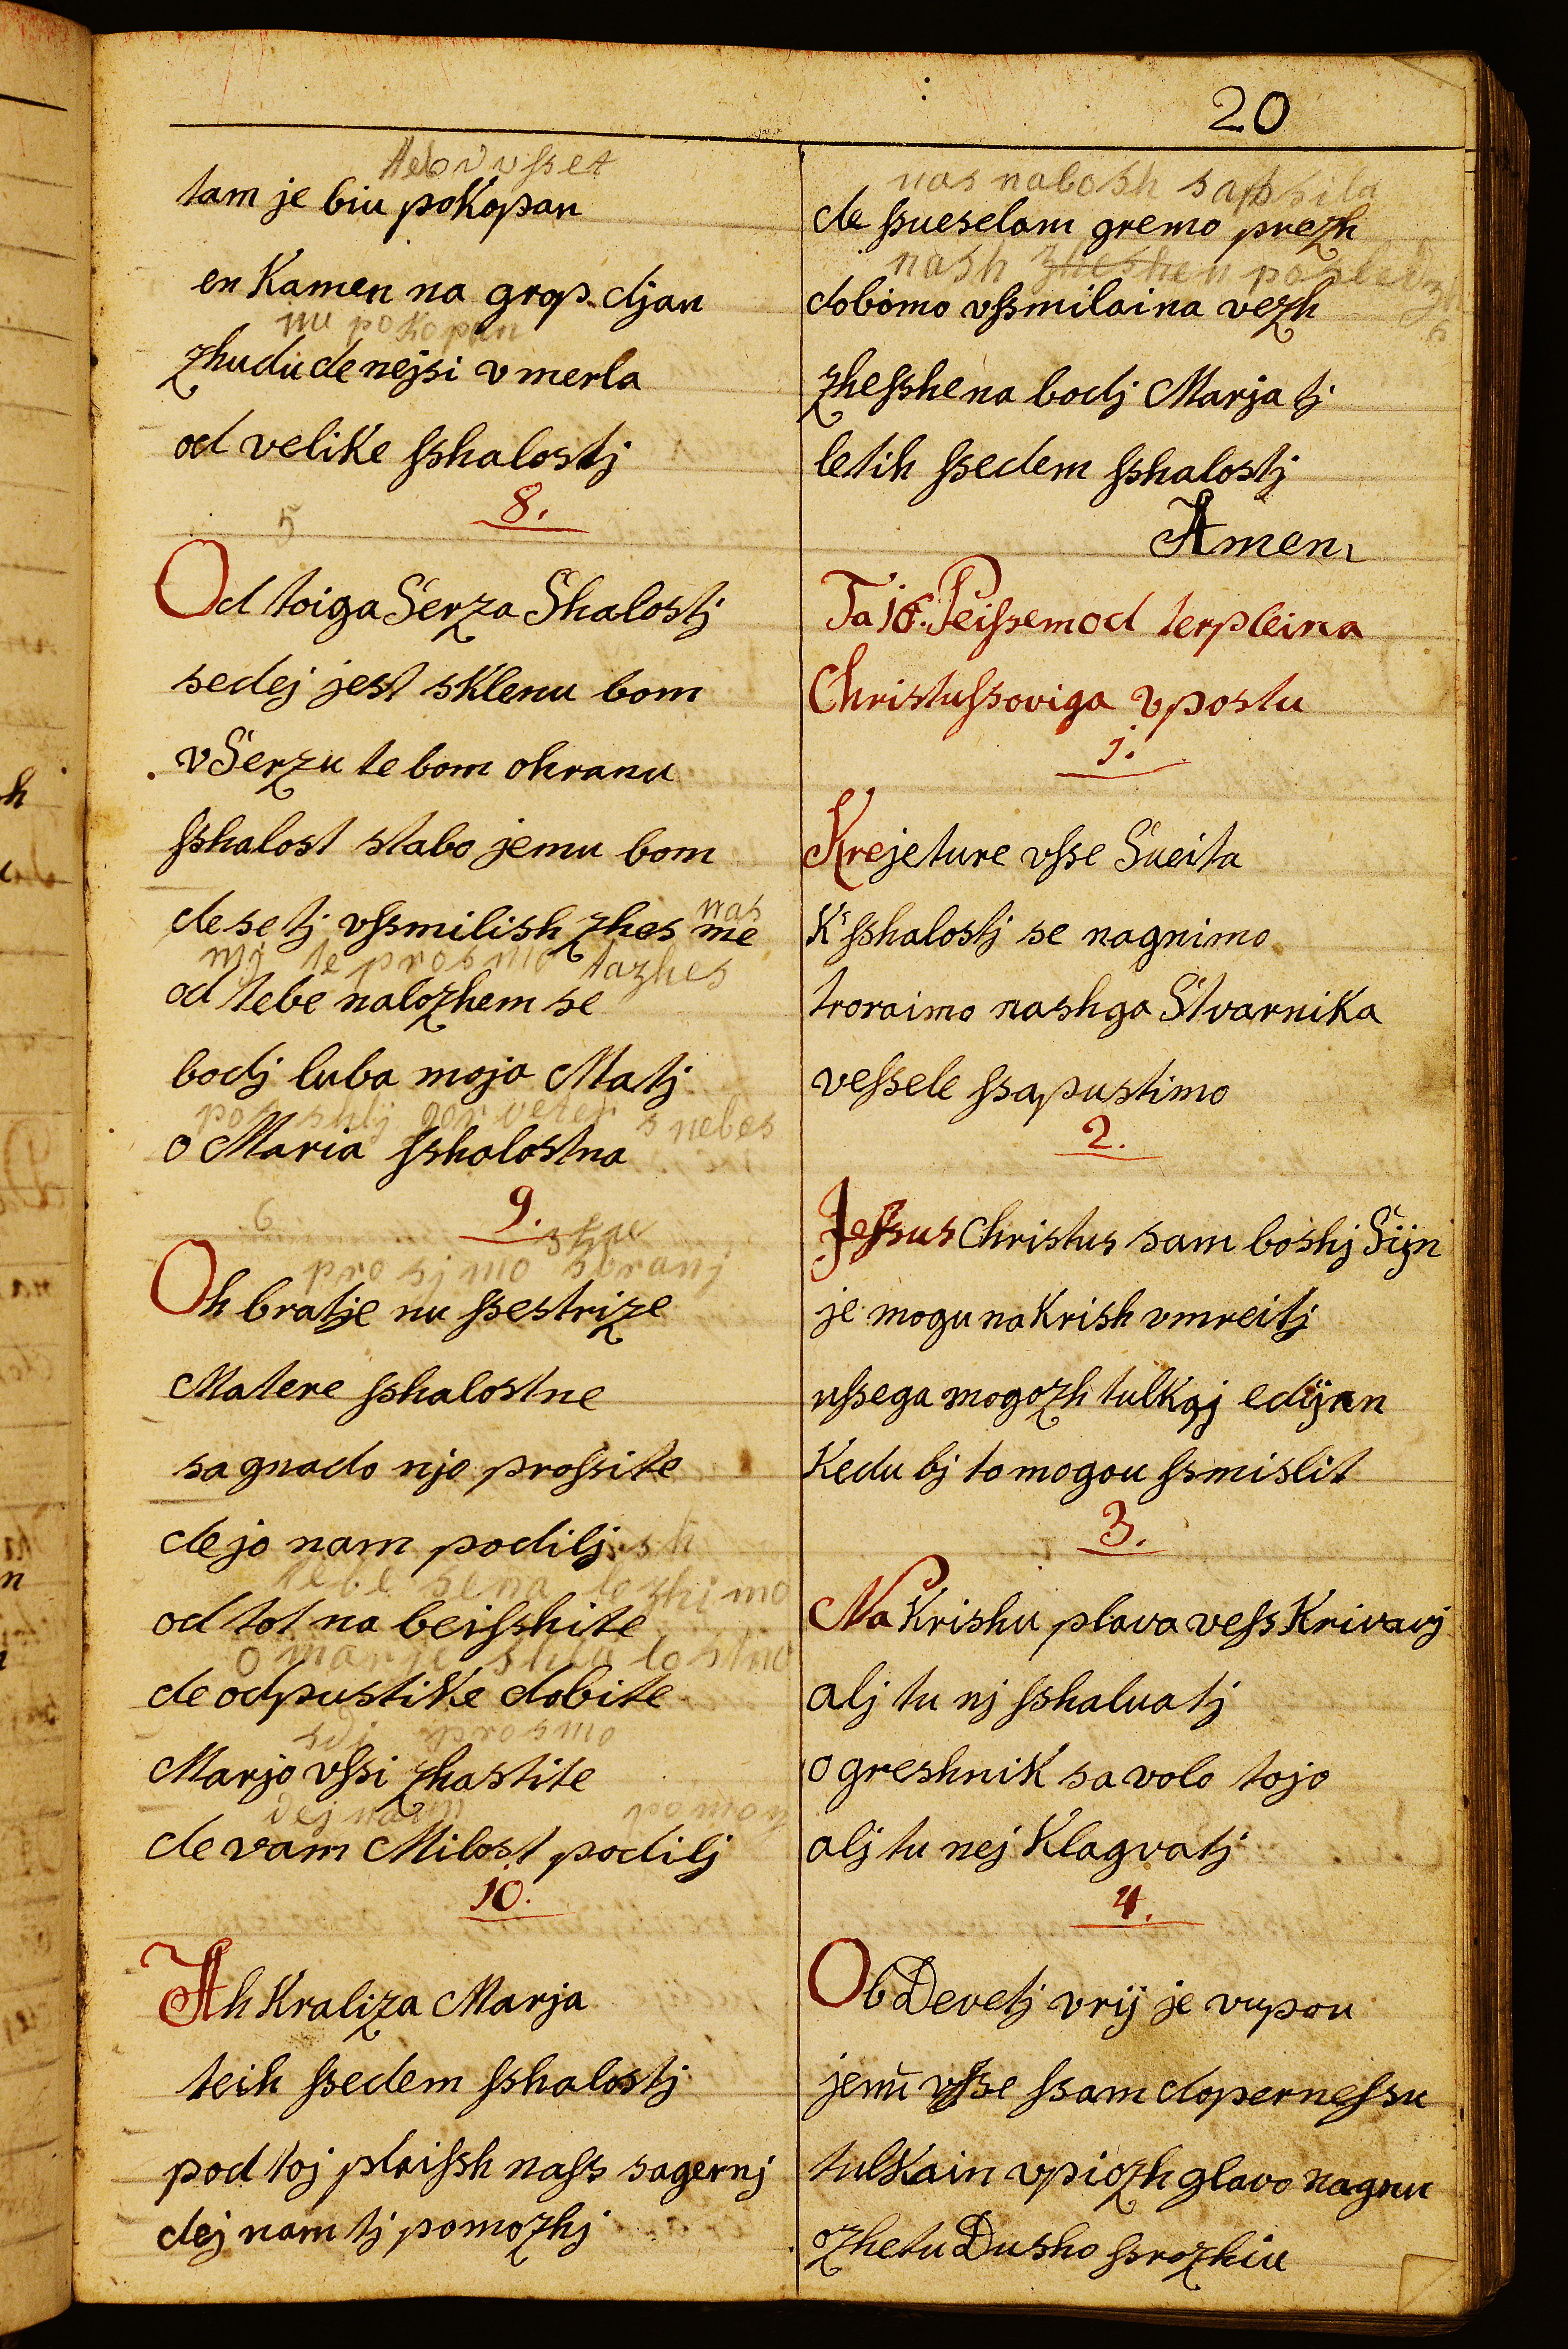 20
tam je biu pokopan
en Kamen na grop djan
nu pokopan
zhudu de nejsi v merla
od velike ſshalostj
8.
5
Od toiga Serza Shalostj
sedej jest sklenu bom
v Serzu te bom ohranu
ſshalost stabo jemu bom
nas
de se tj vſsmilish zhes me
mj te prosmo tazhes
od tebe nalozhem se
bodj luba moja Matj
s nebes
o Maria ſshalostna
9.
6
prosimo
Oh bratje nu ſsestrize
Matere ſshalostne
sa gnado njo proſsite
de jo nam podilj
tebe
od tot na beiſshite
o marje shalostno
de odpustike dobite
prosmo
Marjo vſsi zhastite
dej nam pomozh
de vam Milost podilj
10.
Ah Kraliza Marja
teih ſsedem ſshalostj
pod toj plaiſsh naſs sagernj
dej nam tj pomozhj
nas nabosh
de ſsueselam gremo prezh
nash
dobimo vſsmilaina vezh
zheſshena bodj Marja tj
letih ſsedem ſshalostj
Amen
Ta 16. Peiſsem od terpleina
Christuſsoviga v postu
1.
Krejeture vſse Sueita
K' ſshalostj se nagnimo
troraimo nashga Stvarnika
veſsele ſsapustimo
2.
Jeſsus Christus sam boshj Sijn
je mogu na Krish vmreitj
uſsega mogozh tulkaj edijnn
Kedu bj to mogou ſsmislit
3.
Na Krishu plava veſs Krivavj
alj tu nj ſshaluatj
o greshnik sa volo tojo
alj tu nej Klagvatj
4.
Ob Devetj vrij je vupou
jemu vſse ſsam doperneſsu
tulkain vpiozh glavo nagnu
ozhetu Dusho ſsrozhiu